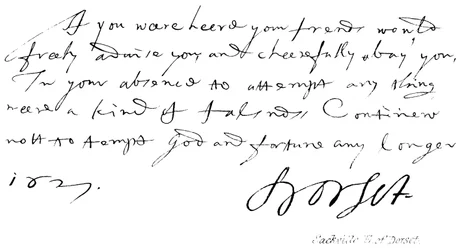 If you weare heere your frends would
freely advise you and cheerefully obay you,
In your absence to attempt any thing
weere a kind of falsnes Continew
nott to tempt God and fortune any Longer
1627.
Dorset.
Sackville E. of Dorset.